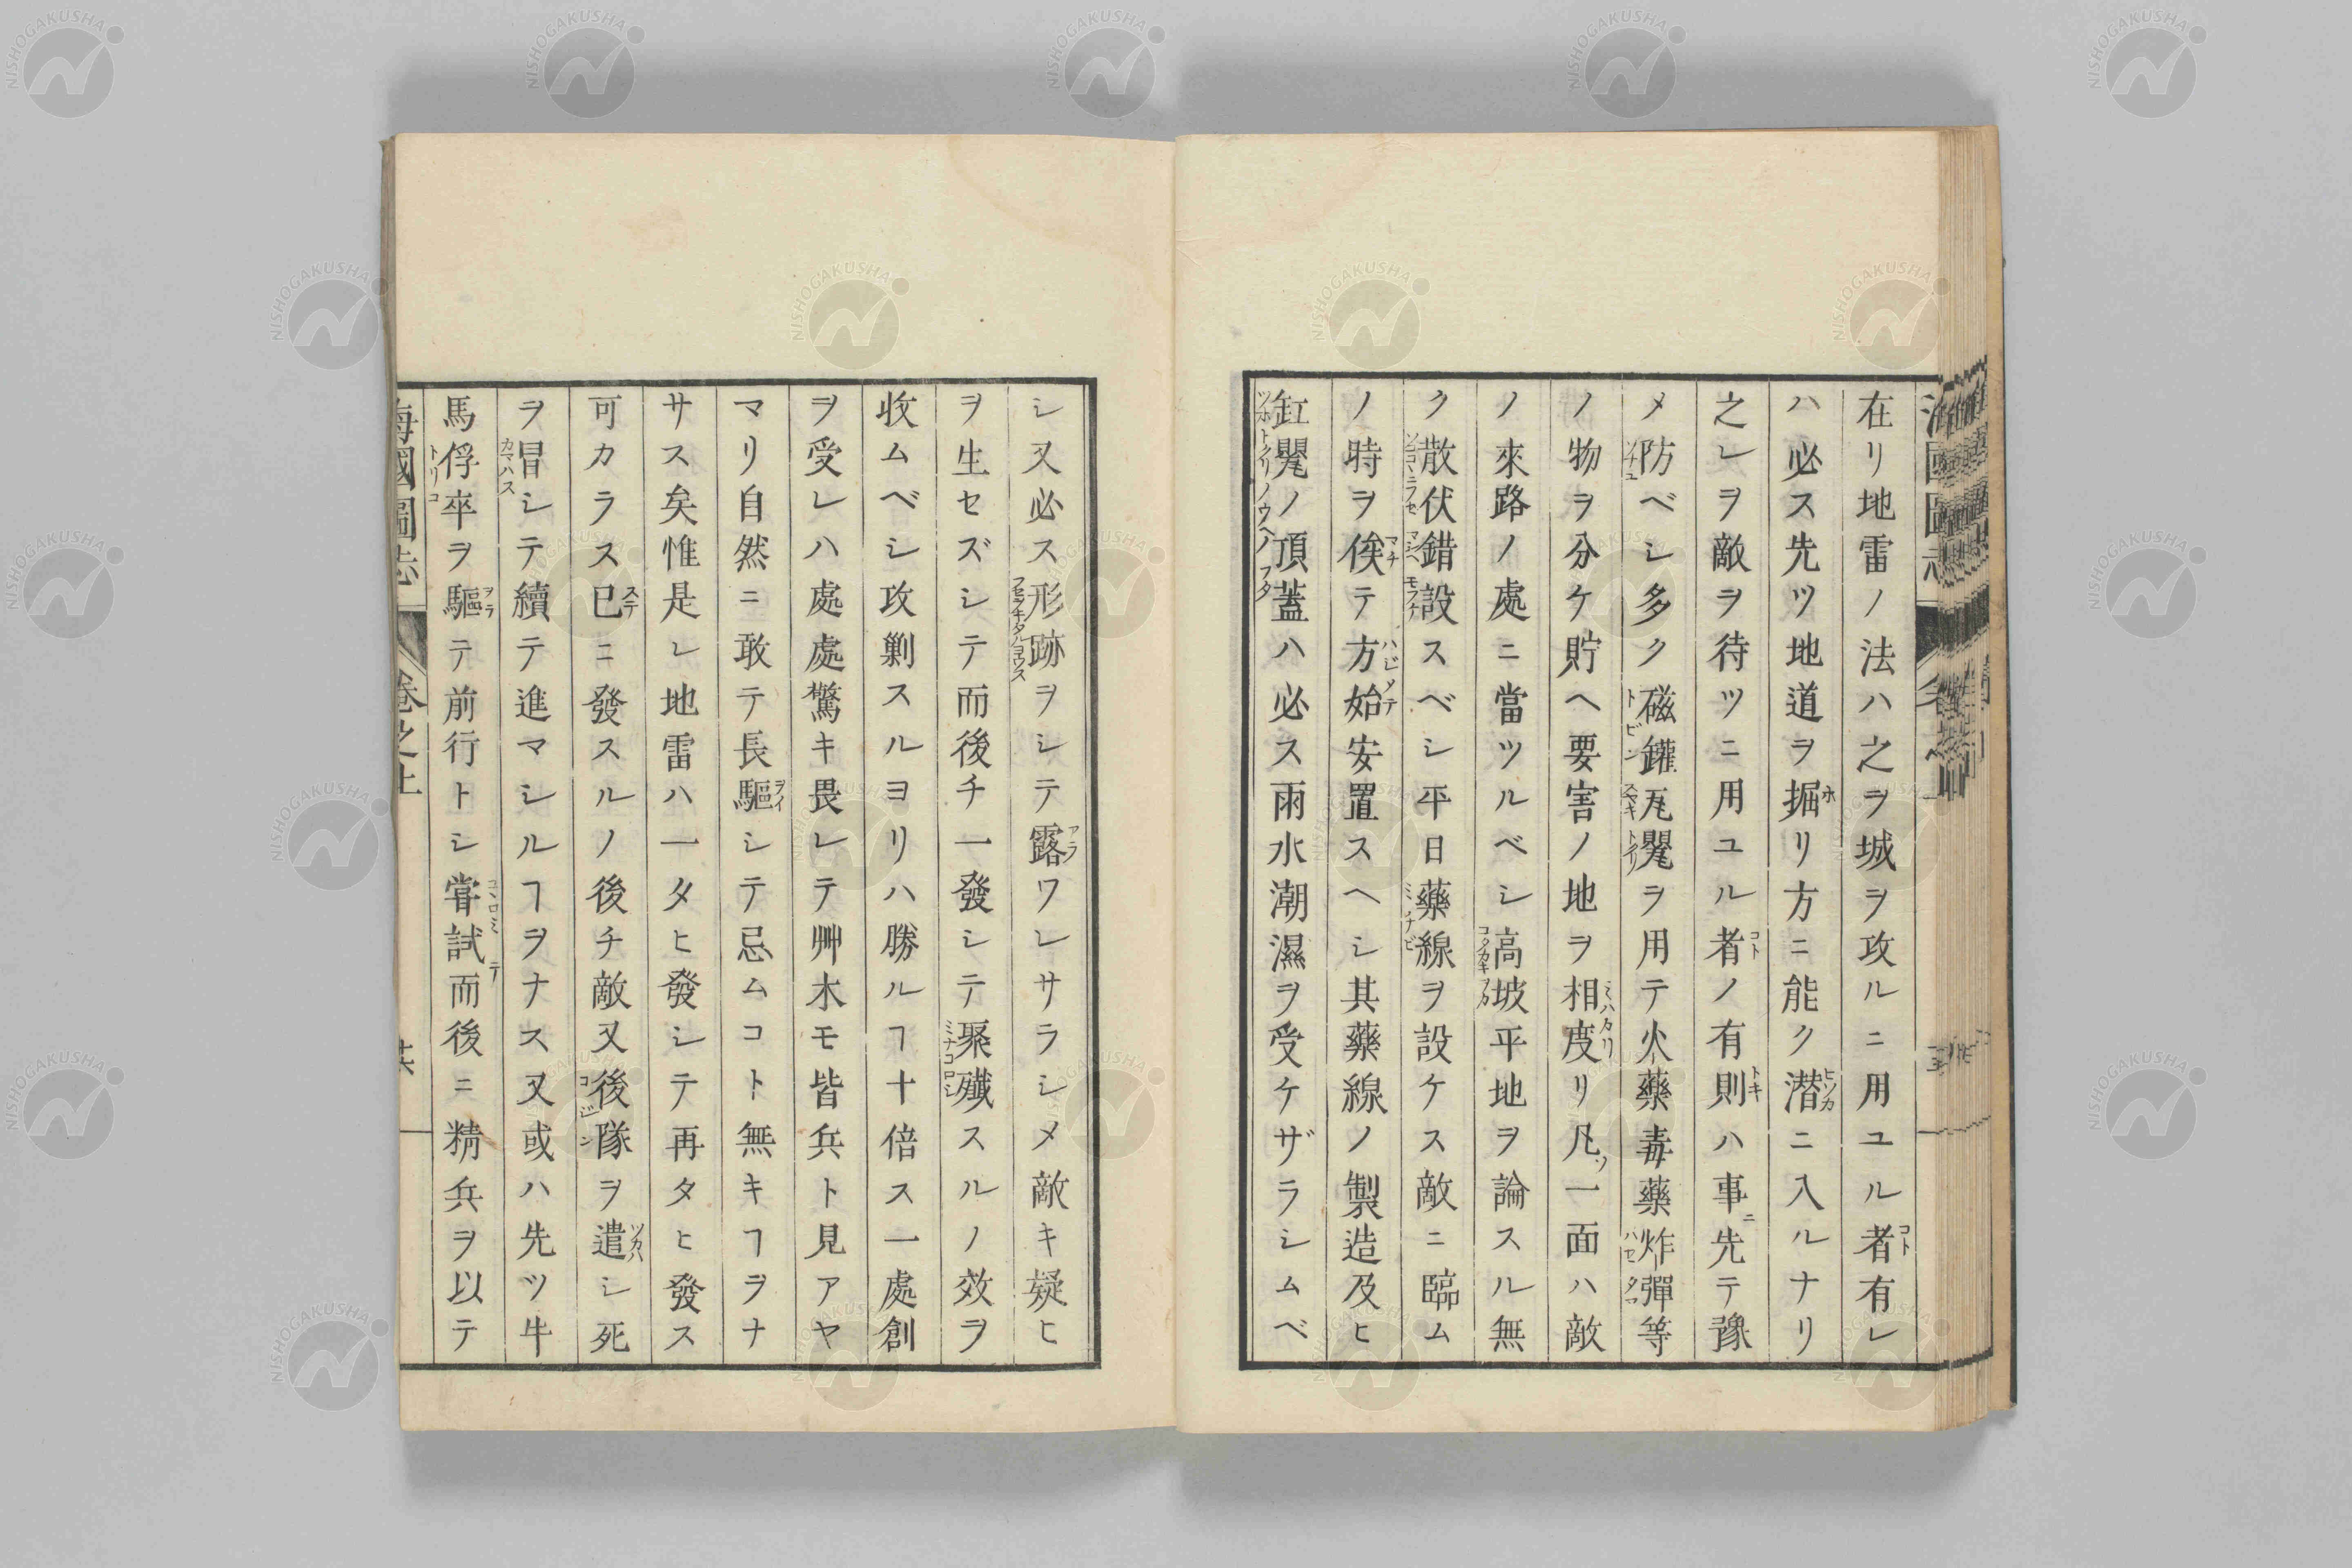 在リ地雷ノ法ハ之ヲ城ヲ攻ルニ用ユル者有レ
ハ必ス先ツ地道ヲ掘リ方ニ能ク潜ニ入ルナリ
之レヲ敵ヲ待ツニ用ユル者ノ有則ハ事ニ先テ豫
メ防ベシ多ク磁鑵瓦甖ヲ用テ火藥毒藥炸彈等
ノ物ヲ分ケ貯ヘ要害ノ地ヲ相度リ凡ソ一面ハ敵
ノ來路ノ處ニ當ツルベシ高坡平地ヲ論スル無
ク散伏錯設スベシ平日藥線ヲ設ケス敵ニ臨ム
ノ時ヲ俟テ方始安置スヘシ其藥線ノ製造及ヒ
缸甖ノ頂蓋ハ必ス雨水潮濕ヲ受ケザラシムベ
シ又必ス形跡ヲシテ露ワレサラシメ敵キ疑ヒ
ヲ生セズシテ而後チ一發シテ聚殲スルノ效ヲ
收ムベシ攻剿スルヨリハ勝ルヿ十倍ス一處創
ヲ受レハ處處驚キ畏レテ艸木モ皆兵ト見アヤ
マリ自然ニ敢テ長驅シテ忌ムコト無キヿヲナ
サス矣惟是レ地雷ハ一タヒ發シテ再タヒ發ス
可カラス已ニ發スルノ後チ敵又後隊ヲ遣シ死
ヲ冒シテ續テ進マシルヿヲナス又或ハ先ツ牛
馬俘卒ヲ驅テ前行トシ甞試而後ニ精兵ヲ以テ
海國圖志 卷之上
NISHOGAKUSHA